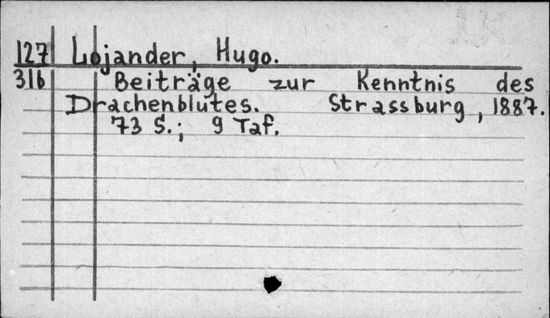 127 Lojander, Hugo.
316 Beiträge zur Kenntnis des
Drachenblutes. Strassburg, 1887.
73 S.; 9 Taf.